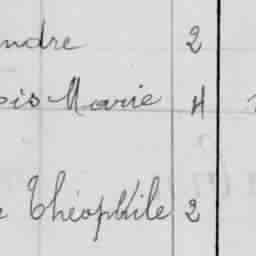 ndre 2
ois-Marie 4
e Théophile 2